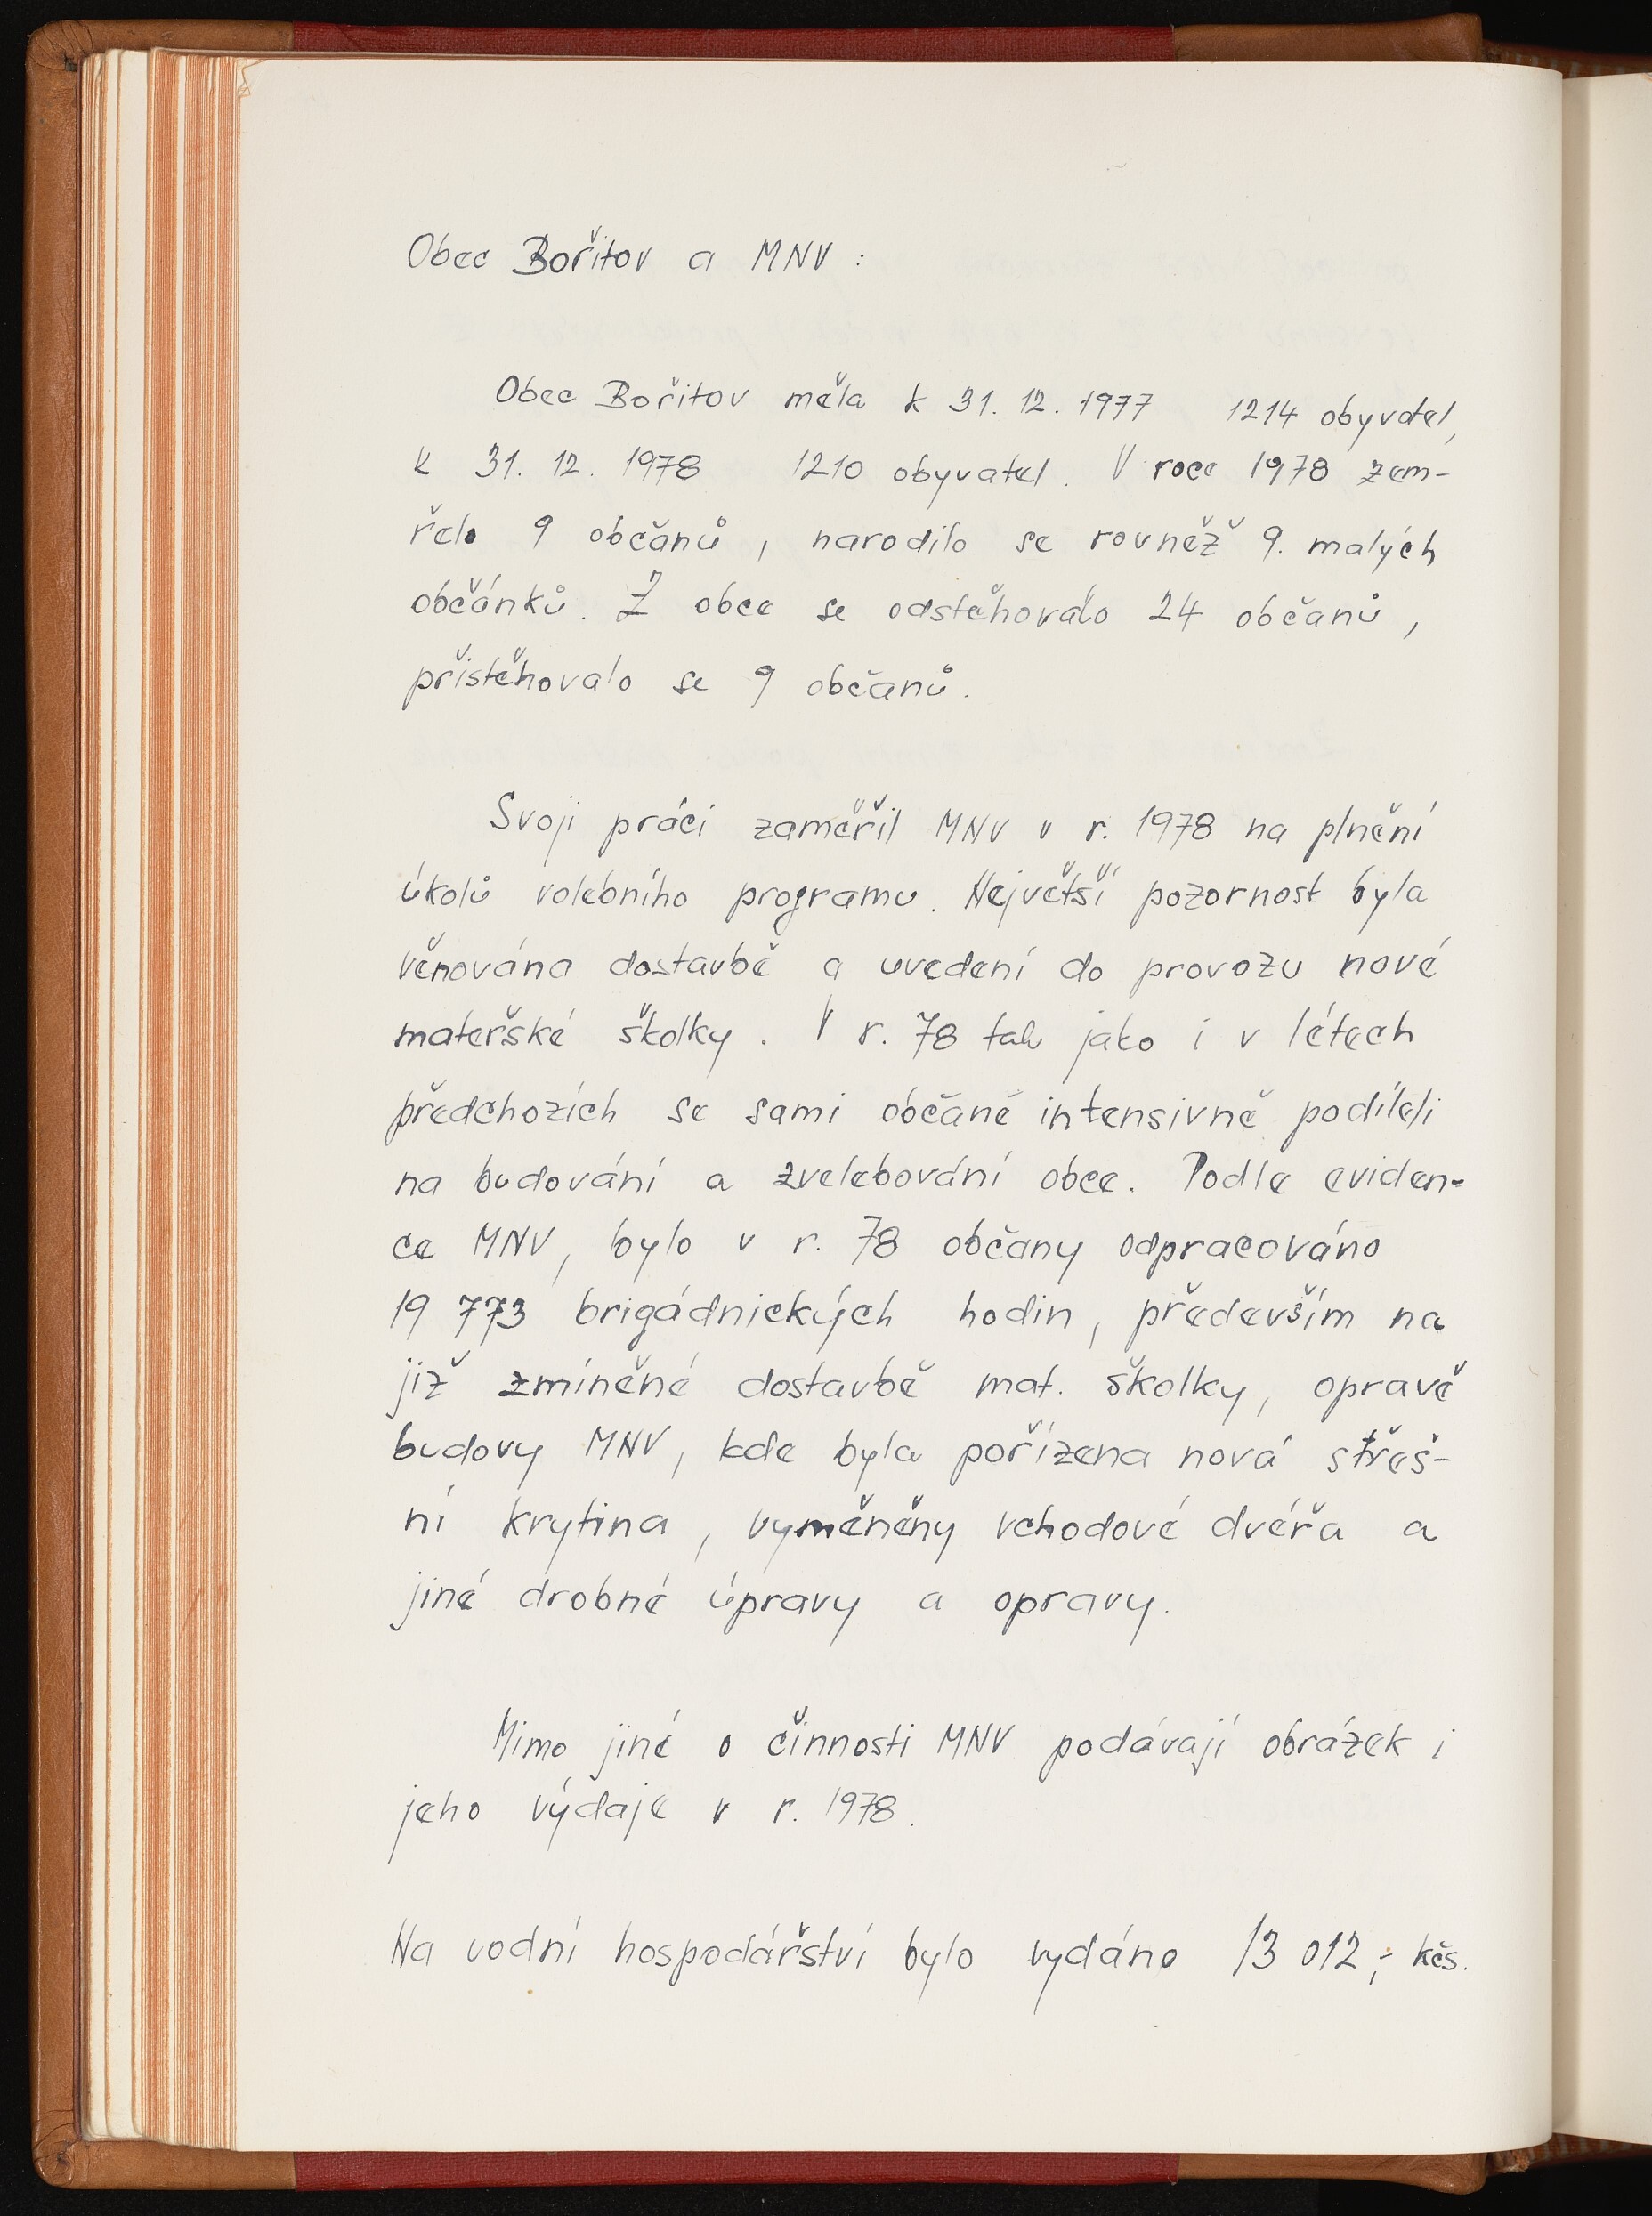 Obec Bořitov a MNV :
Obec Bořitov měla k 31. 12. 1977 1214 obyvatel,
k 31. 12. 1978 1210 obyvatel. V roce 1978 zem-
řelo 9 občanů, narodilo se rovněž 9. malých
občánků. Z obce se odstěhovalo 24 občanů,
přistěhovalo se 9 občanů.
Svoji práci zaměřil MNV v r. 1978 na plnění
úkolů volebního programu. Největší pozornost byla
věnována dostavbě a uvedení do provozu nové
mateřské školky. V r. 78 tak jako i v létech
předchozích se sami občané intensivně podíleli
na budování a zvelebování obce. Podle eviden-
ce MNV, bylo v r. 78 občany odpracováno
19 773 brigádnických hodin, především na
již zmíněné dostavbě mat. školky, opravě
budovy MNV, kde byla pořízena nová střeš-
ní krytina, vyměněny vchodové dvéřa a
jiné drobné úpravy a opravy.
Mimo jiné o činnosti MNV podávají obrázek i
jeho výdaje v r. 1978.
Na vodní hospodářství bylo vydáno 13 012,- kčs.